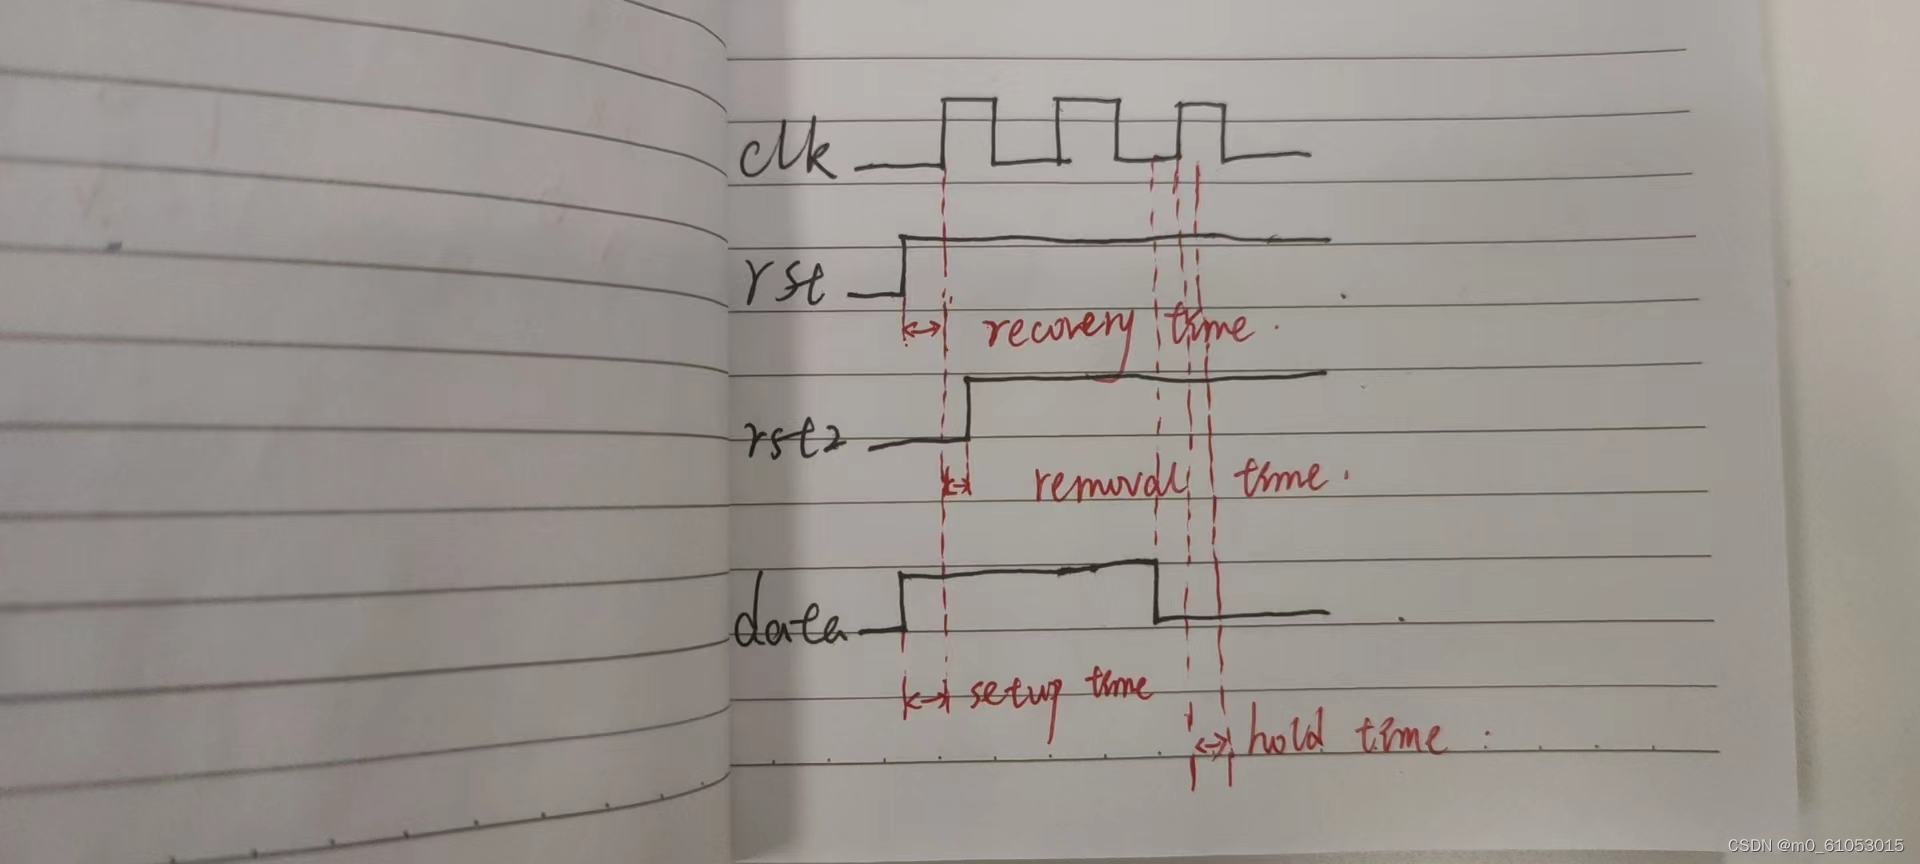 clk
rst
recovery time.
rst2
removal time.
data
setup time
hold time.
CSDN @m0_61053015